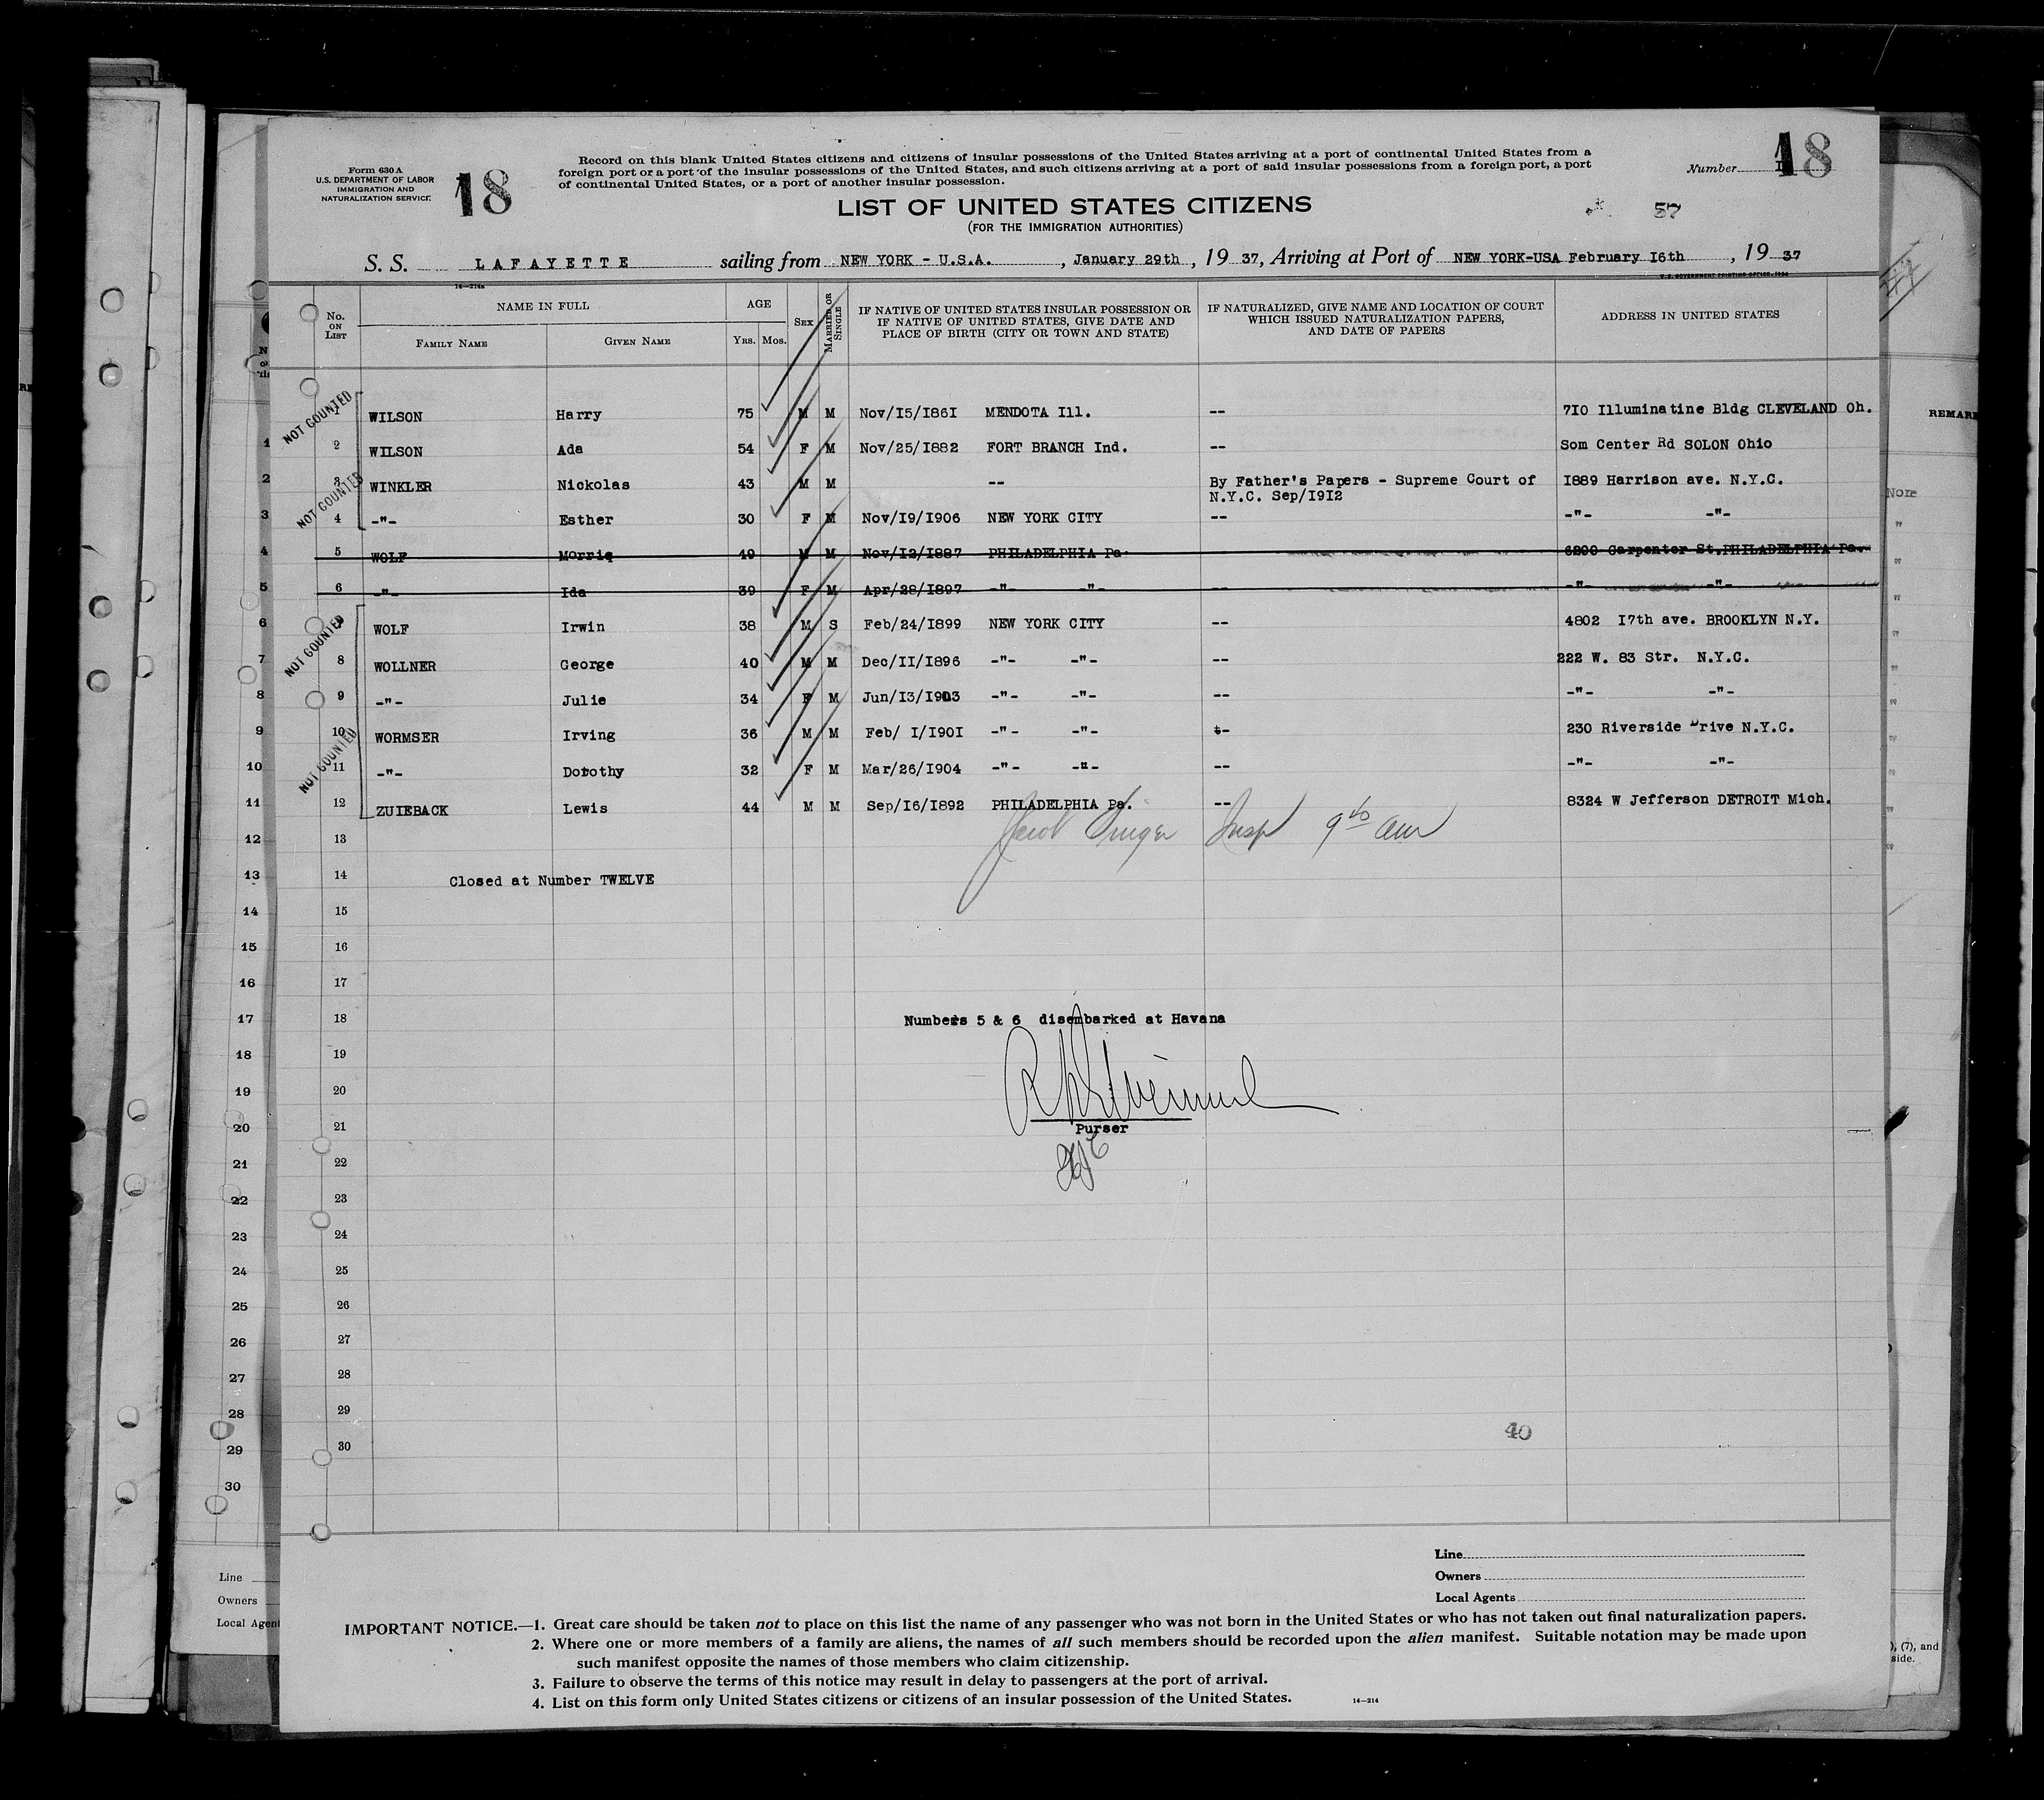 Form 630 A
U.S. DEPARTMENT OF LABOR
IMMIGRATION AND
NATURALIZATION SERVICE
18
Record on this blank United States citizens and citizens of insular possessions of the United States arriving at a port of continental United States from a
foreign port or a port of the insular possessions of the United States, and such citizens arriving at a port of said insular possessions from a foreign port, a port
of continental United States, or a port of another insular possession.
Number 18
LIST OF UNITED STATES CITIZENS
(FOR THE IMMIGRATION AUTHORITIES)
57
S. S. LAFAYETTE sailing from NEW YORK - U.S.A. , January 29th , 19 37, Arriving at Port of NEW YORK-USA February I6th , 19 37
16—214a
U.S. GOVERNMENT PRINTING OFFICE: 1934
No. ON LIST
NAME IN FULL
FAMILY NAME GIVEN NAME
AGE
YRS. MOS.
SEX
MARRIED OR SINGLE
IF NATIVE OF UNITED STATES INSULAR POSSESSION OR
IF NATIVE OF UNITED STATES, GIVE DATE AND
PLACE OF BIRTH (CITY OR TOWN AND STATE)
IF NATURALIZED, GIVE NAME AND LOCATION OF COURT
WHICH ISSUED NATURALIZATION PAPERS,
AND DATE OF PAPERS
ADDRESS IN UNITED STATES
NOT COUNTED
1 WILSON Harry 75 M M Nov/I5/I86I MENDOTA Ill. -- 7I0 Illuminatine Bldg CLEVELAND Oh.
2 WILSON Ada 54 F M Nov/25/I882 FORT BRANCH Ind. -- Som Center Rd SOLON Ohio
NOT COUNTED
3 WINKLER Nickolas 43 M M -- By Father's Papers - Supreme Court of I889 Harrison ave. N.Y.C.
N.Y.C. Sep/I9I2
4 -"- Esther 30 F M Nov/I9/I906 NEW YORK CITY -- -"- -"-
5 WOLF Morris 49 M M Nov/I2/I887 PHILADELPHIA Pa. 6200 Carpenter St.PHILADELPHIA Pa.
6 -"- Ida 39 F M Apr/28/I897 -"- -"- -- -"- -"-
NOT COUNTED
7 WOLF Irwin 38 M S Feb/24/I899 NEW YORK CITY -- 4802 I7th ave. BROOKLYN N.Y.
8 WOLLNER George 40 M M Dec/II/I896 -"- -"- -- 222 W. 83 Str. N.Y.C.
9 -"- Julie 34 F M Jun/I3/I903 -"- -"- -- -"- -"-
10 WORMSER Irving 36 M M Feb/ I/I90I -"- -"- -- 230 Riverside Drive N.Y.C.
NOT COUNTED
11 -"- Dorothy 32 F M Mar/26/I904 -"- -"- -- -"- -"-
12 ZUIEBACK Lewis 44 M M Sep/I6/I892 PHILADELPHIA Pa. -- 8324 W Jefferson DETROIT Mich.
13 Jacob Singer Insp
14 Closed at Number TWELVE
15
16
17
18 Numbers 5 & 6 disembarked at Havana
19
20
21
Purser
22
23
24
25
26
27
28
29
30
40
Line
Owners
Local Agents
IMPORTANT NOTICE.—1. Great care should be taken not to place on this list the name of any passenger who was not born in the United States or who has not taken out final naturalization papers.
2. Where one or more members of a family are aliens, the names of all such members should be recorded upon the alien manifest. Suitable notation may be made upon
such manifest opposite the names of those members who claim citizenship.
3. Failure to observe the terms of this notice may result in delay to passengers at the port of arrival.
4. List on this form only United States citizens or citizens of an insular possession of the United States.
14—214